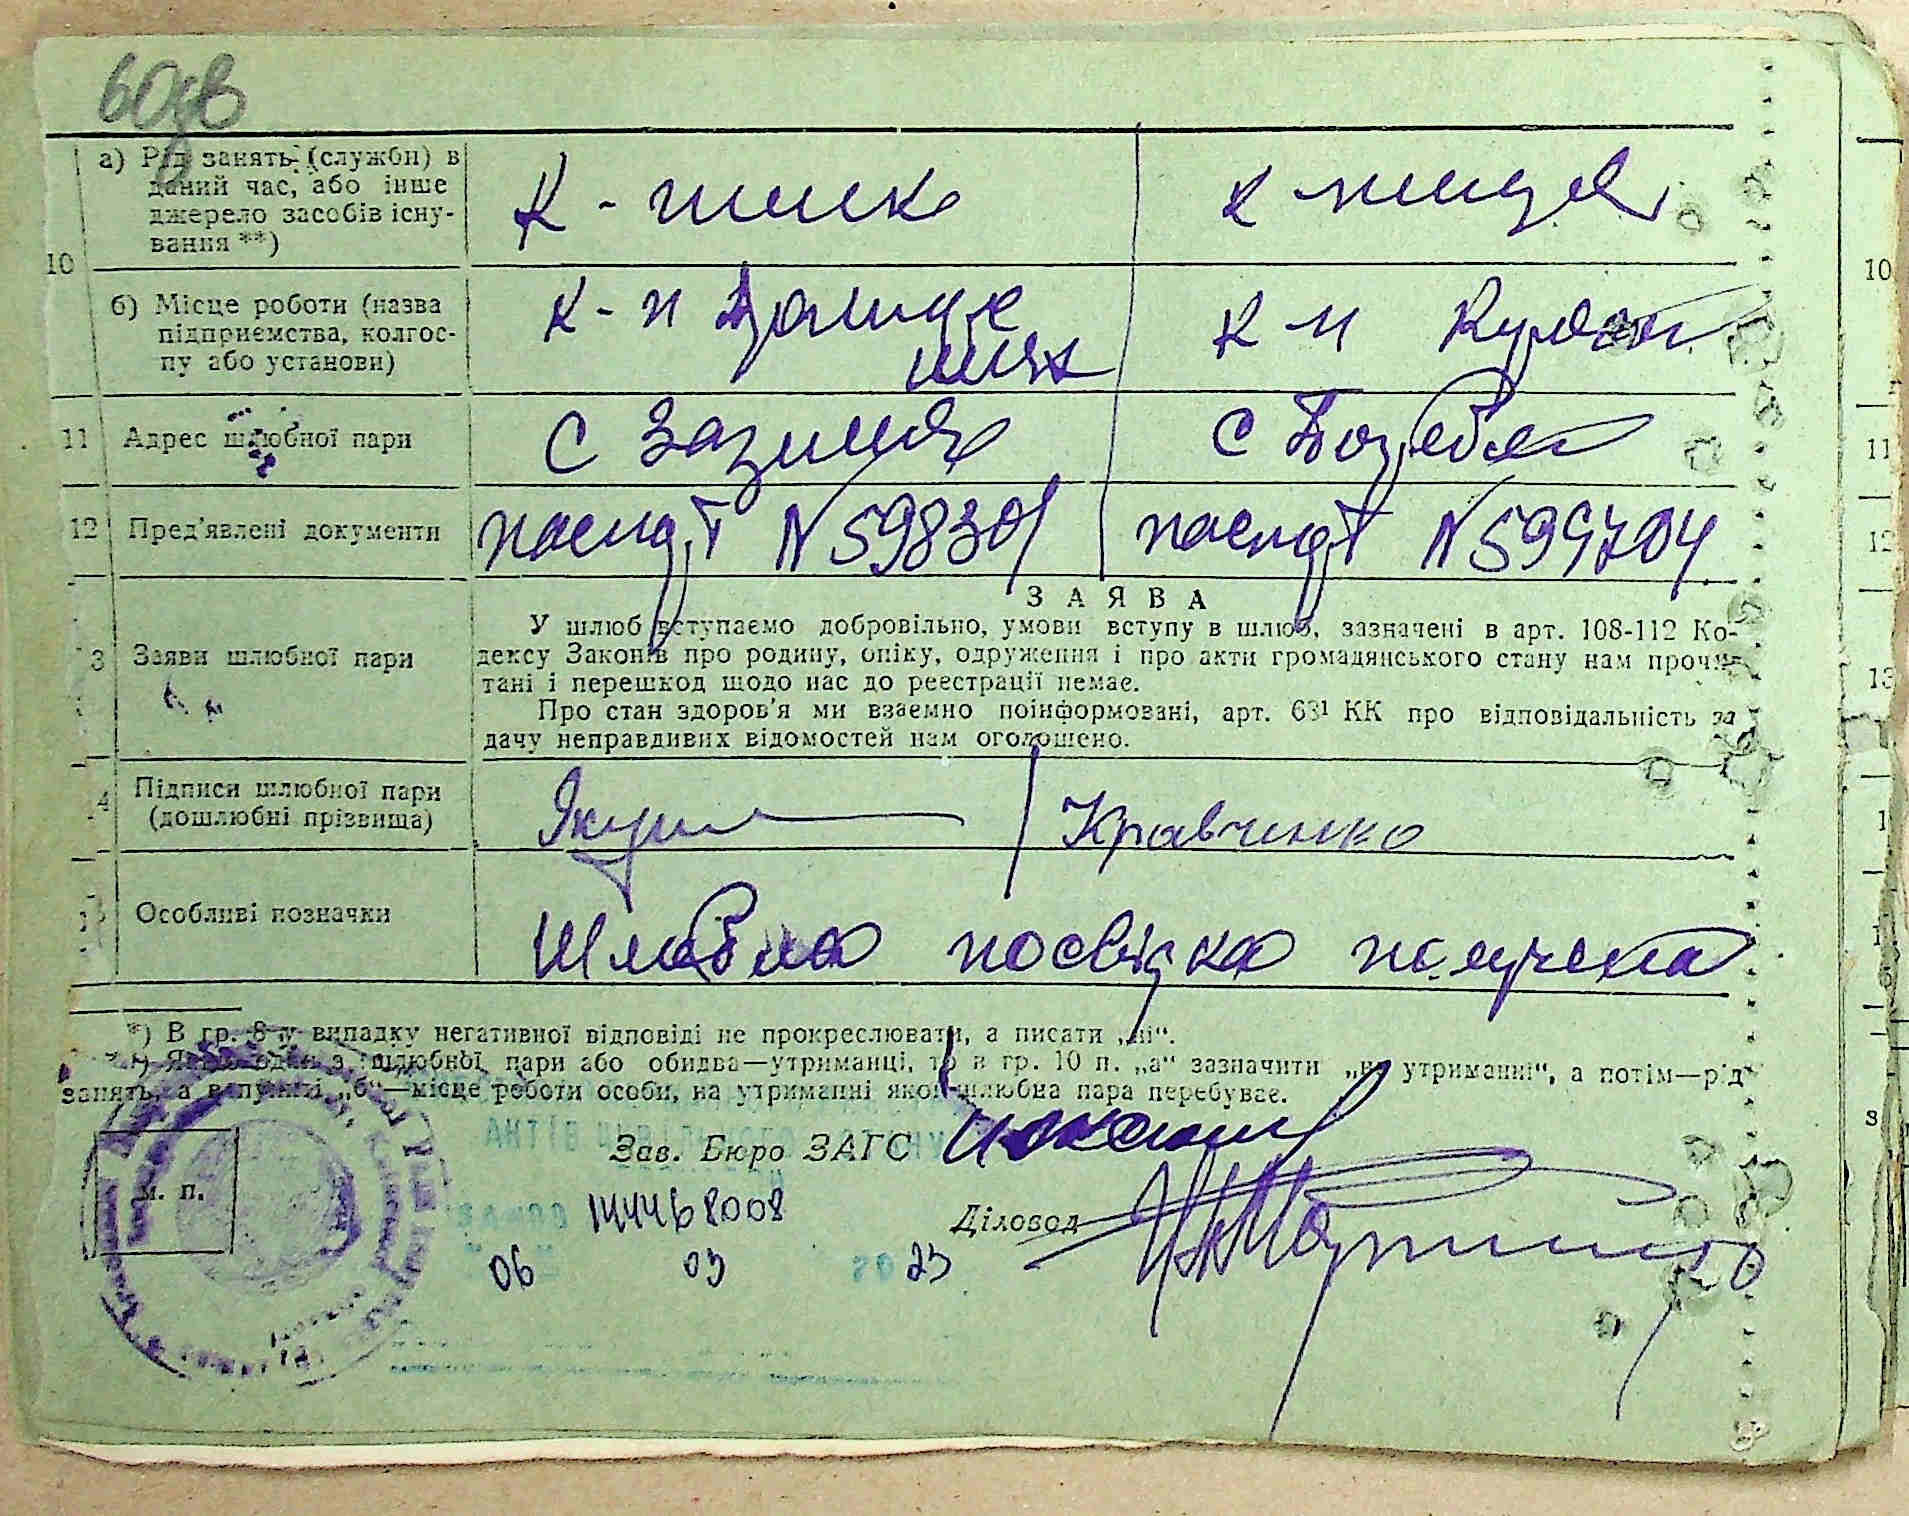 60зв
а) Рід занять (служби) в
даний час, або інше
джерело засобів існу-
вання **)
К-ник
К-ниця
10
10
б) Місце роботи (назва
підприємства, колгос-
пу або установи)
К-п
К п
11 Адрес шлюбної пари
С Зазимя
С
11
12 Пред'явлені документи
паспорт N 598301
паспорт N 599704
ЗАЯВА
3 Заяви шлюбної пари
У шлюб вступаємо добровільно, умови вступу в шлюб, зазначені в арт. 108-112 Ко-
дексу Законів про родину, опіку, одруження і про акти громадянського стану нам прочи-
тані і перешкод щодо нас до реєстрації немає.
Про стан здоров'я ми взаємно поінформовані, арт. 63¹ КК про відповідальність за
дачу неправдивих відомостей нам оголошено.
13
4 Підписи шлюбної пари
(дошлюбні прізвища)
Кравченко
Особливі позначки
Шлюбна посвідка получена
*) В гр. 8 у випадку негативної відповіді не прокреслювати, а писати „ні“.
**) Якщо один з шлюбної пари або обидва—утриманці, то в гр. 10 п. „а“ зазначити „на утриманні“, а потім—рід
занять, а в пункті „б“—місце роботи особи, на утриманні якої шлюбна пара перебуває.
Зав. Бюро ЗАГС
м. п.
Діловод
06 03 23